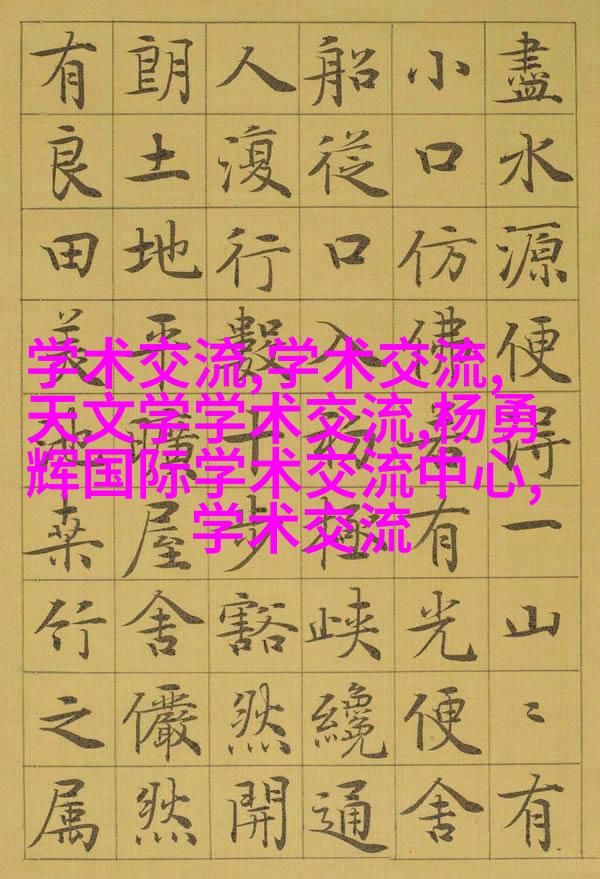 盡水源便得一山〻有
小口仿佛若有光便舍
船從口入初極峽纔通
人復行數十步豁然開
朗土地平曠屋舍儼然
有良田美池桑竹之属
学术交流,学术交流,
天文学学术交流,杨勇
辉国际学术交流中心,
学术交流